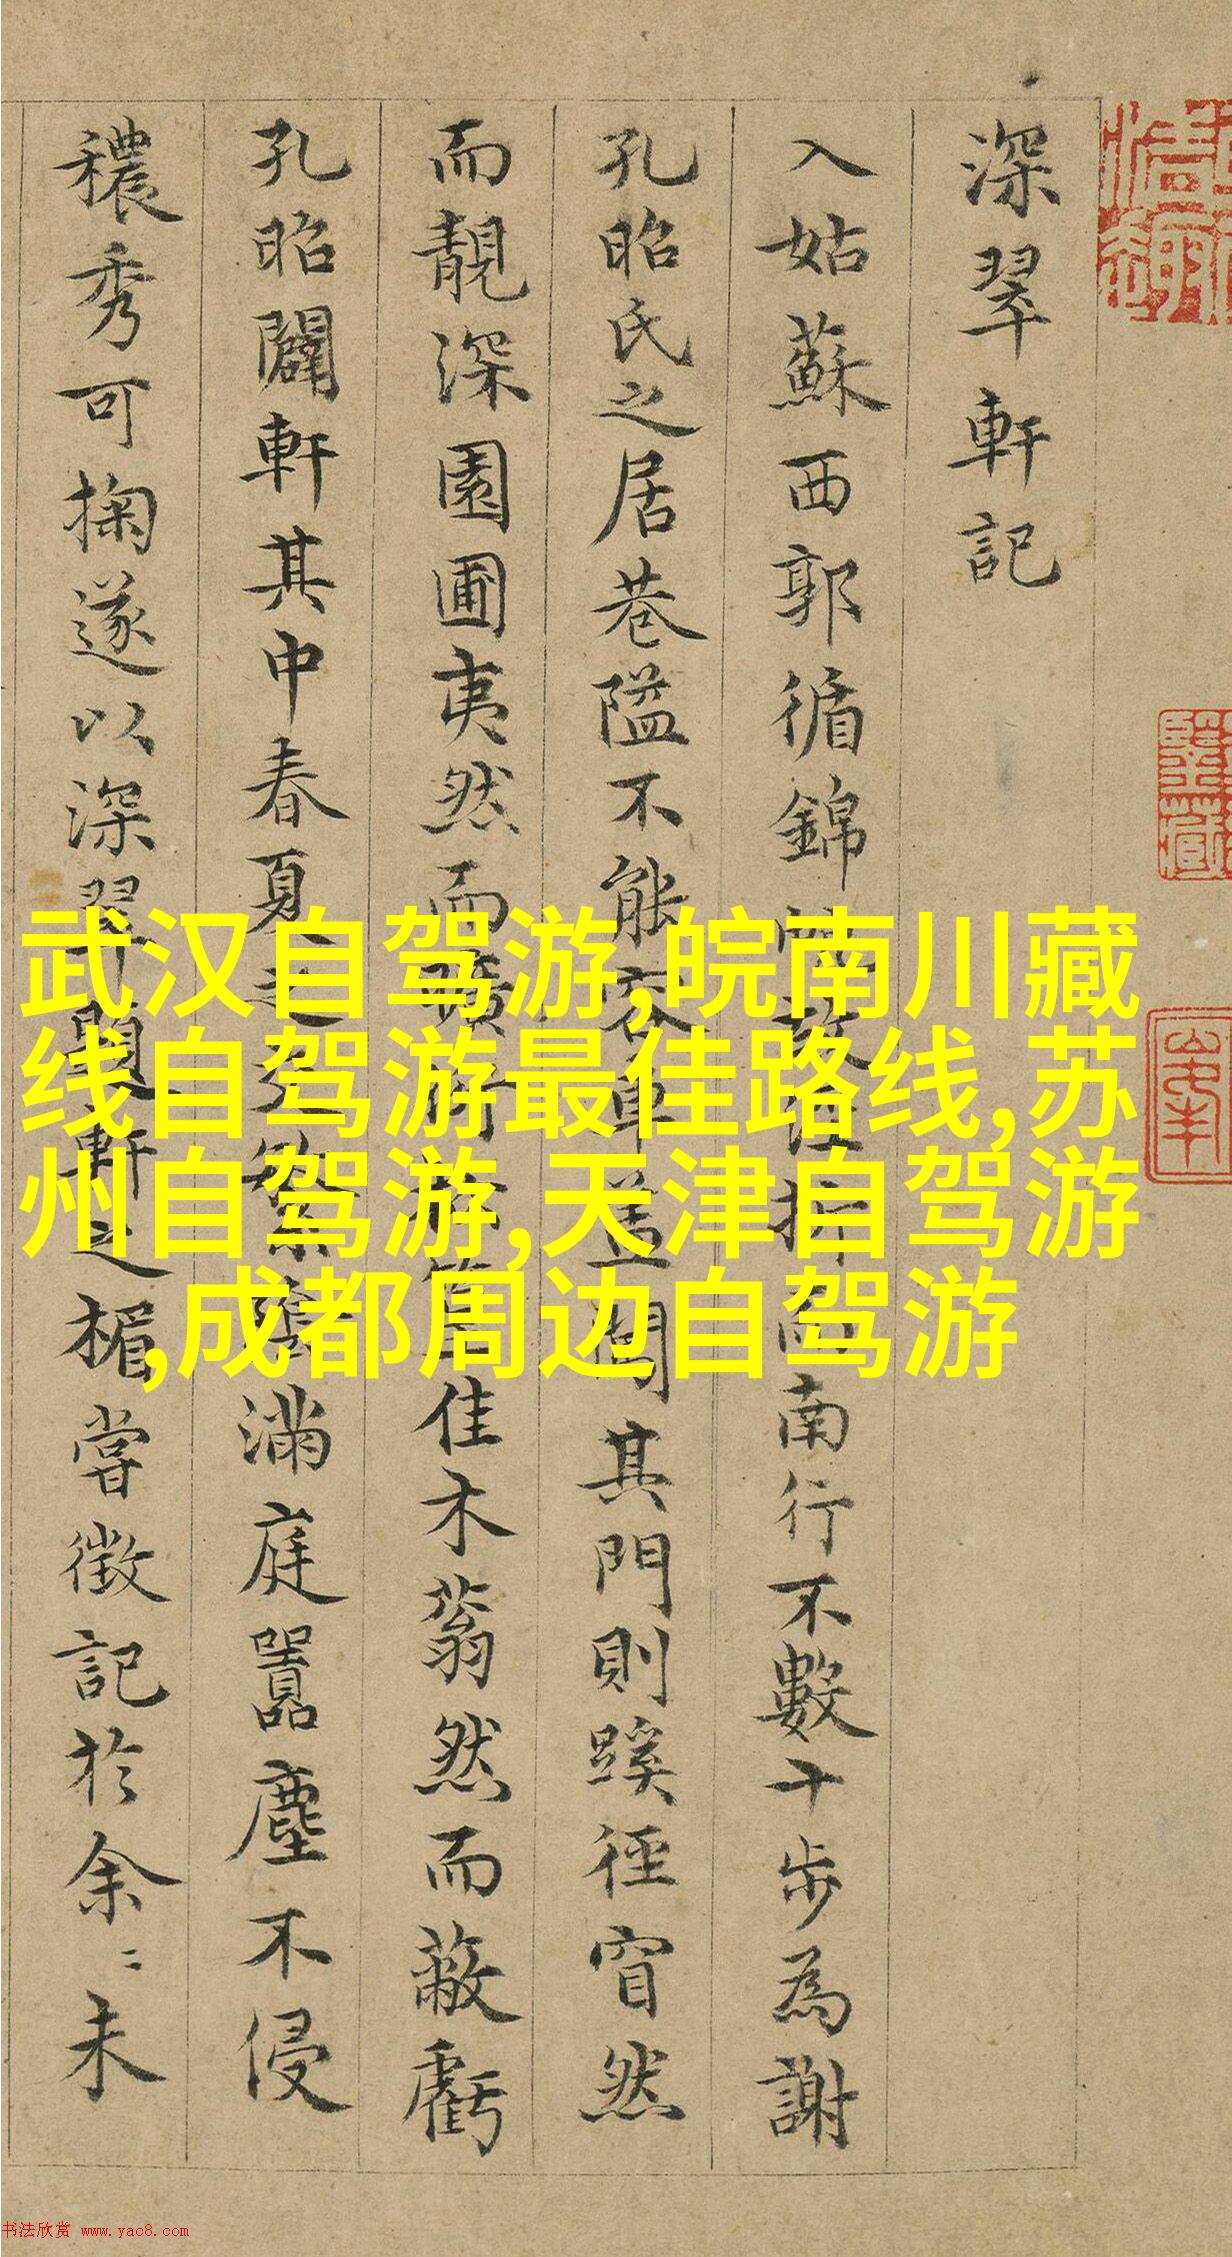 深翠軒記
入姑蘇西郭循錦
南行不數十步為謝
孔昭氏之居巷隘不能容車蓋
其門則蹊徑窅然
而靚深園圃夷然而曠
佳木蓊然而蔽虧
孔昭闢軒其中春夏之
滿庭囂塵不侵
穠秀可掬遂以深翠題軒之楣嘗徵記於余〻未
武汉自驾游,皖南川藏
线自驾游最佳路线,苏
州自驾游,天津自驾游
,成都周边自驾游
书法欣赏 www.yac8.com